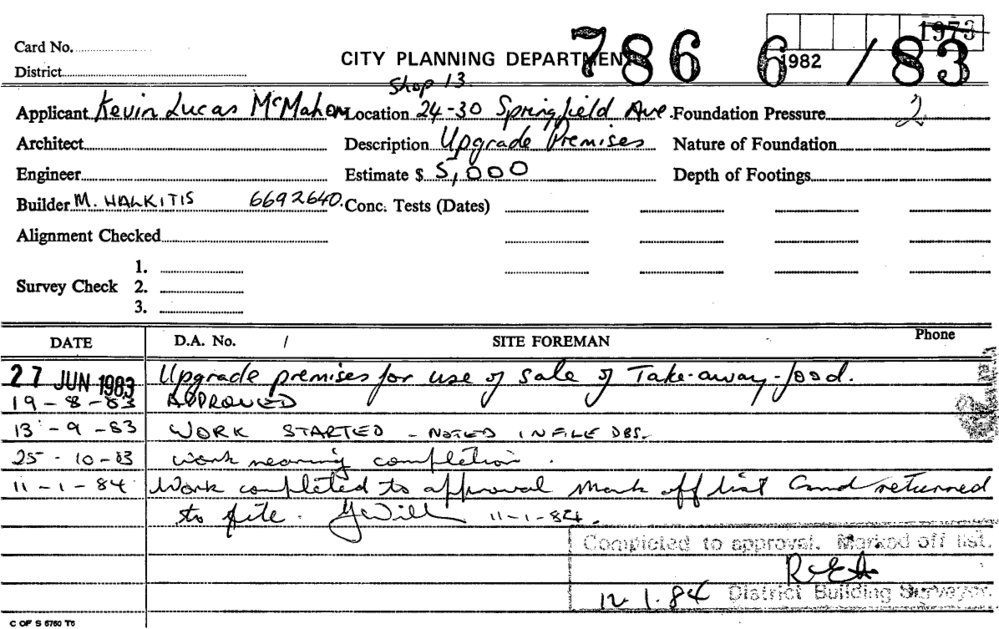 1973
Card No.
CITY PLANNING DEPARTMENT 786 6 1982 / 83
District
Shop 13
Applicant Kevin Lucas McMahon Location 24-30 Springfield Ave. Foundation Pressure 2
Architect Description Upgrade Premises Nature of Foundation
Engineer Estimate $ 5,000 Depth of Footings
Builder M. HALKITIS 6692640. Conc. Tests (Dates)
Alignment Checked
1.
Survey Check 2.
3.
DATE D.A. No. / SITE FOREMAN Phone
27 JUN 1983 Upgrade premises for use of sale of Take-away-food.
19-8-83 APPROVED
13-9-83 WORK STARTED - NOTED IN FILE DBS.
25-10-83 work nearing completion.
11-1-84 Work completed to approval Mark off list and returned
to file. 11-1-84.
Completed to approval. Marked off list.
12.1.84 District Building Surveyor.
C OF S 5760 T5